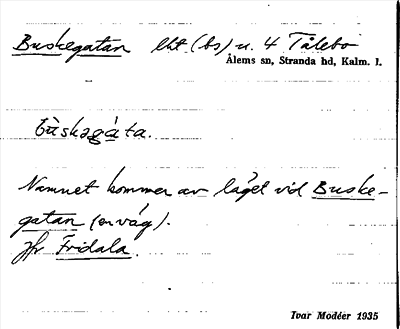 Buskegatan lht (bs) u. 4 Tålebo
Ålems sn, Stranda hd, Kalm. l.
bùskəgáta.
Namnet kommer av läget vid Buske-
gatan (en väg).
Jfr Fridala.
Ivar Modéer 1935